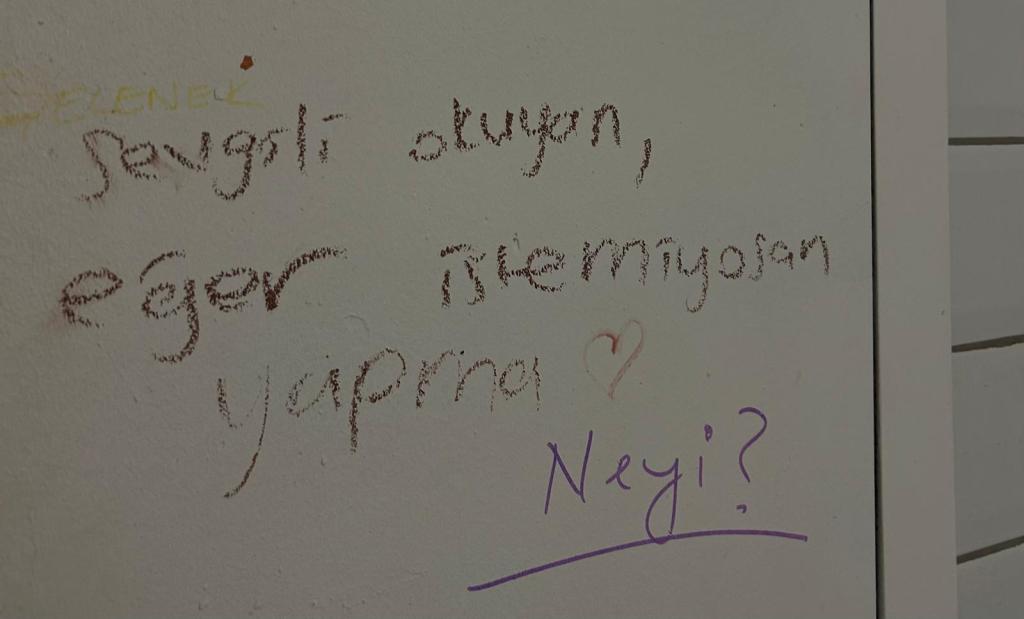 sevgili okuyan,
eğer istemiyosan
yapma
Neyi?